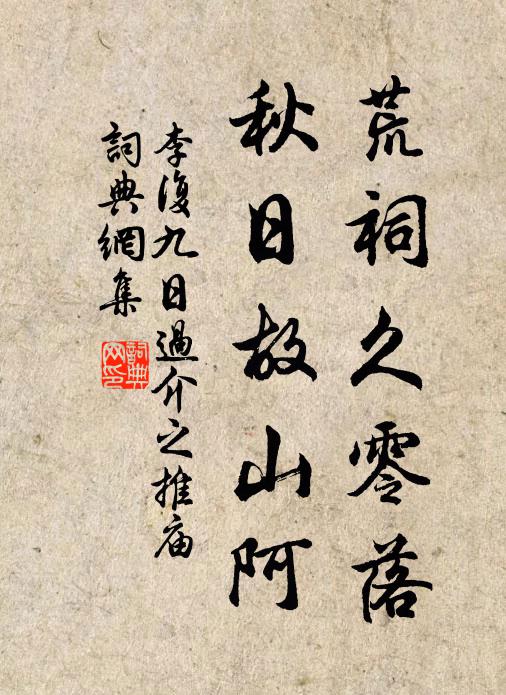 荒祠久零落
秋日故山阿
李復九日過介之推庙
詞典網集
詞典
网印